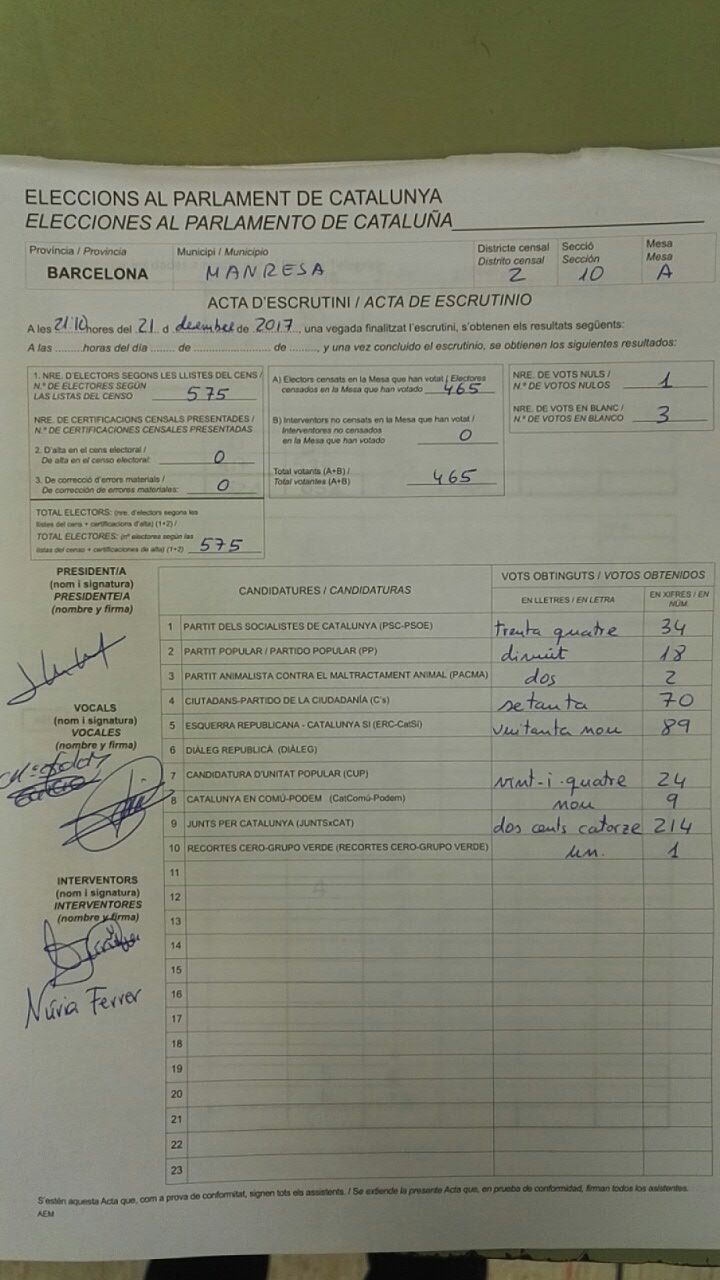 ELECCIONS AL PARLAMENT DE CATALUNYA
ELECCIONES AL PARLAMENTO DE CATALUÑA
Provincia / Provincia
BARCELONA
Municipi / Municipio
MANRESA
Districte censal
Distrito censal
2
Secció
Sección
10
Mesa
Mesa
A
ACTA D'ESCRUTINI / ACTA DE ESCRUTINIO
A les 21:10 hores del 21 d desembre de 2017, una vegada finalitzat l'escrutini, s'obtenen els resultats següents:
A las .........horas del día ........ de ................. de ........, y una vez concluido el escrutinio, se obtienen los siguientes resultados:
1. NRE. D'ELECTORS SEGONS LES LLISTES DEL CENS /
N.º DE ELECTORES SEGÚN
LAS LISTAS DEL CENSO 575
NRE. DE CERTIFICACIONS CENSALS PRESENTADES /
N.º DE CERTIFICACIONES CENSALES PRESENTADAS
2. D'alta en el cens electoral /
De alta en el censo electoral: 0
3. De correcció d'errors materials /
De corrección de errores materiales: 0
TOTAL ELECTORS: (nre. d'electors segons les
llistes del cens + certificacions d'alta) (1+2) /
TOTAL ELECTORES: (nº electores según las
listas del censo + certificaciones de alta) (1+2) 575
A) Electors censats en la Mesa que han votat / Electores
censados en la Mesa que han votado 465
B) Interventors no censats en la Mesa que han votat /
Interventores no censados
en la Mesa que han votado 0
Total votants (A+B) /
Total votantes (A+B) 465
NRE. DE VOTS NULS /
N.º DE VOTOS NULOS 1
NRE. DE VOTS EN BLANC /
N.º DE VOTOS EN BLANCO 3
PRESIDENT/A
(nom i signatura)
PRESIDENTE/A
(nombre y firma)
VOCALS
(nom i signatura)
VOCALES
(nombre y firma)
INTERVENTORS
(nom i signatura)
INTERVENTORES
(nombre y firma)
Núria Ferrer
CANDIDATURES / CANDIDATURAS
VOTS OBTINGUTS / VOTOS OBTENIDOS
EN LLETRES / EN LETRA
EN XIFRES / EN NÚM.
1 PARTIT DELS SOCIALISTES DE CATALUNYA (PSC-PSOE) trenta quatre 34
2 PARTIT POPULAR / PARTIDO POPULAR (PP) divuit 18
3 PARTIT ANIMALISTA CONTRA EL MALTRACTAMENT ANIMAL (PACMA) dos 2
4 CIUTADANS-PARTIDO DE LA CIUDADANÍA (C's) setanta 70
5 ESQUERRA REPUBLICANA - CATALUNYA SI (ERC-CatSí) vuitanta nou 89
6 DIÀLEG REPUBLICÀ (DIÀLEG)
7 CANDIDATURA D'UNITAT POPULAR (CUP) vint-i-quatre 24
8 CATALUNYA EN COMÚ-PODEM (CatComú-Podem) nou 9
9 JUNTS PER CATALUNYA (JUNTSxCAT) dos cents catorze 214
10 RECORTES CERO-GRUPO VERDE (RECORTES CERO-GRUPO VERDE) un. 1
11
12
13
14
15
16
17
18
19
20
21
22
23
S'estén aquesta Acta que, com a prova de conformitat, signen tots els assistents. / Se extiende la presente Acta que, en prueba de conformidad, firman todos los asistentes.
AEM